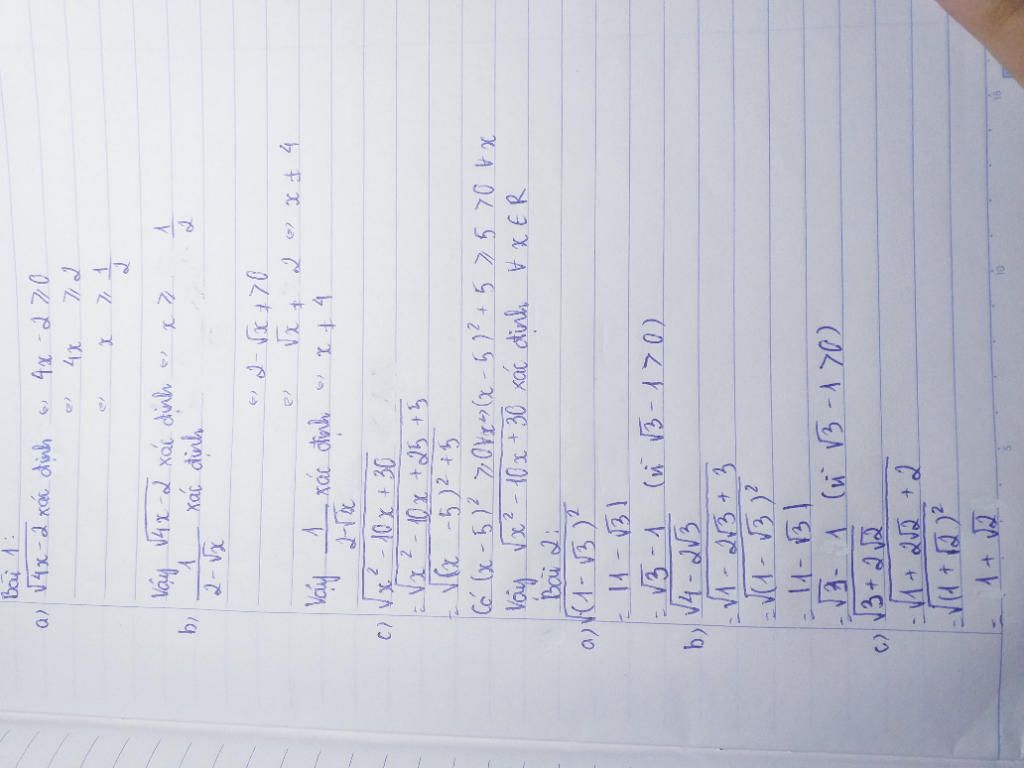 Bài 1:
a) √(4x-2) xác định ⇔ 4x - 2 ⩾ 0
⇔ 4x ⩾ 2
⇔ x ⩾ 1/2
Vậy √(4x-2) xác định ⇔ x ⩾ 1/2
b) 1/(2-√x) xác định
⇔ 2-√x ≠ > 0
⇔ √x ≠ 2 ⇔ x ≠ 4
Vậy 1/(2-√x) xác định ⇔ x ≠ 4
c) √(x² - 10x + 30)
= √(x² - 10x + 25 + 5)
= √((x - 5)² + 5)
Có (x - 5)² ⩾ 0 ∀x ⇒ (x - 5)² + 5 ⩾ 5 > 0 ∀x
Vậy √(x² - 10x + 30) xác định ∀ x ∈ R
Bài 2:
a) √((1 - √3)²)
= |1 - √3|
= √3 - 1 (vì √3 - 1 > 0)
b) √(4 - 2√3)
= √(1 - 2√3 + 3)
= √((1 - √3)²)
= |1 - √3|
= √3 - 1 (vì √3 - 1 > 0)
c) √(3 + 2√2)
= √(1 + 2√2 + 2)
= √((1 + √2)²)
= 1 + √2